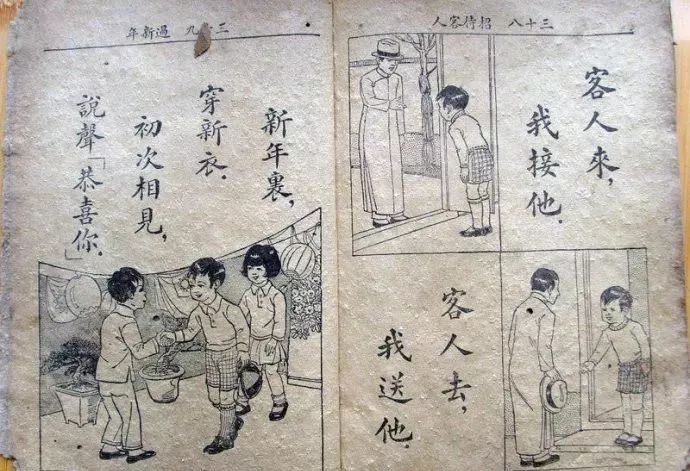 三十八 招待客人
客人來,
我接他.
客人去,
我送他.
三十九 過新年
新年裏,
穿新衣.
初次相見,
說聲「恭喜你」.